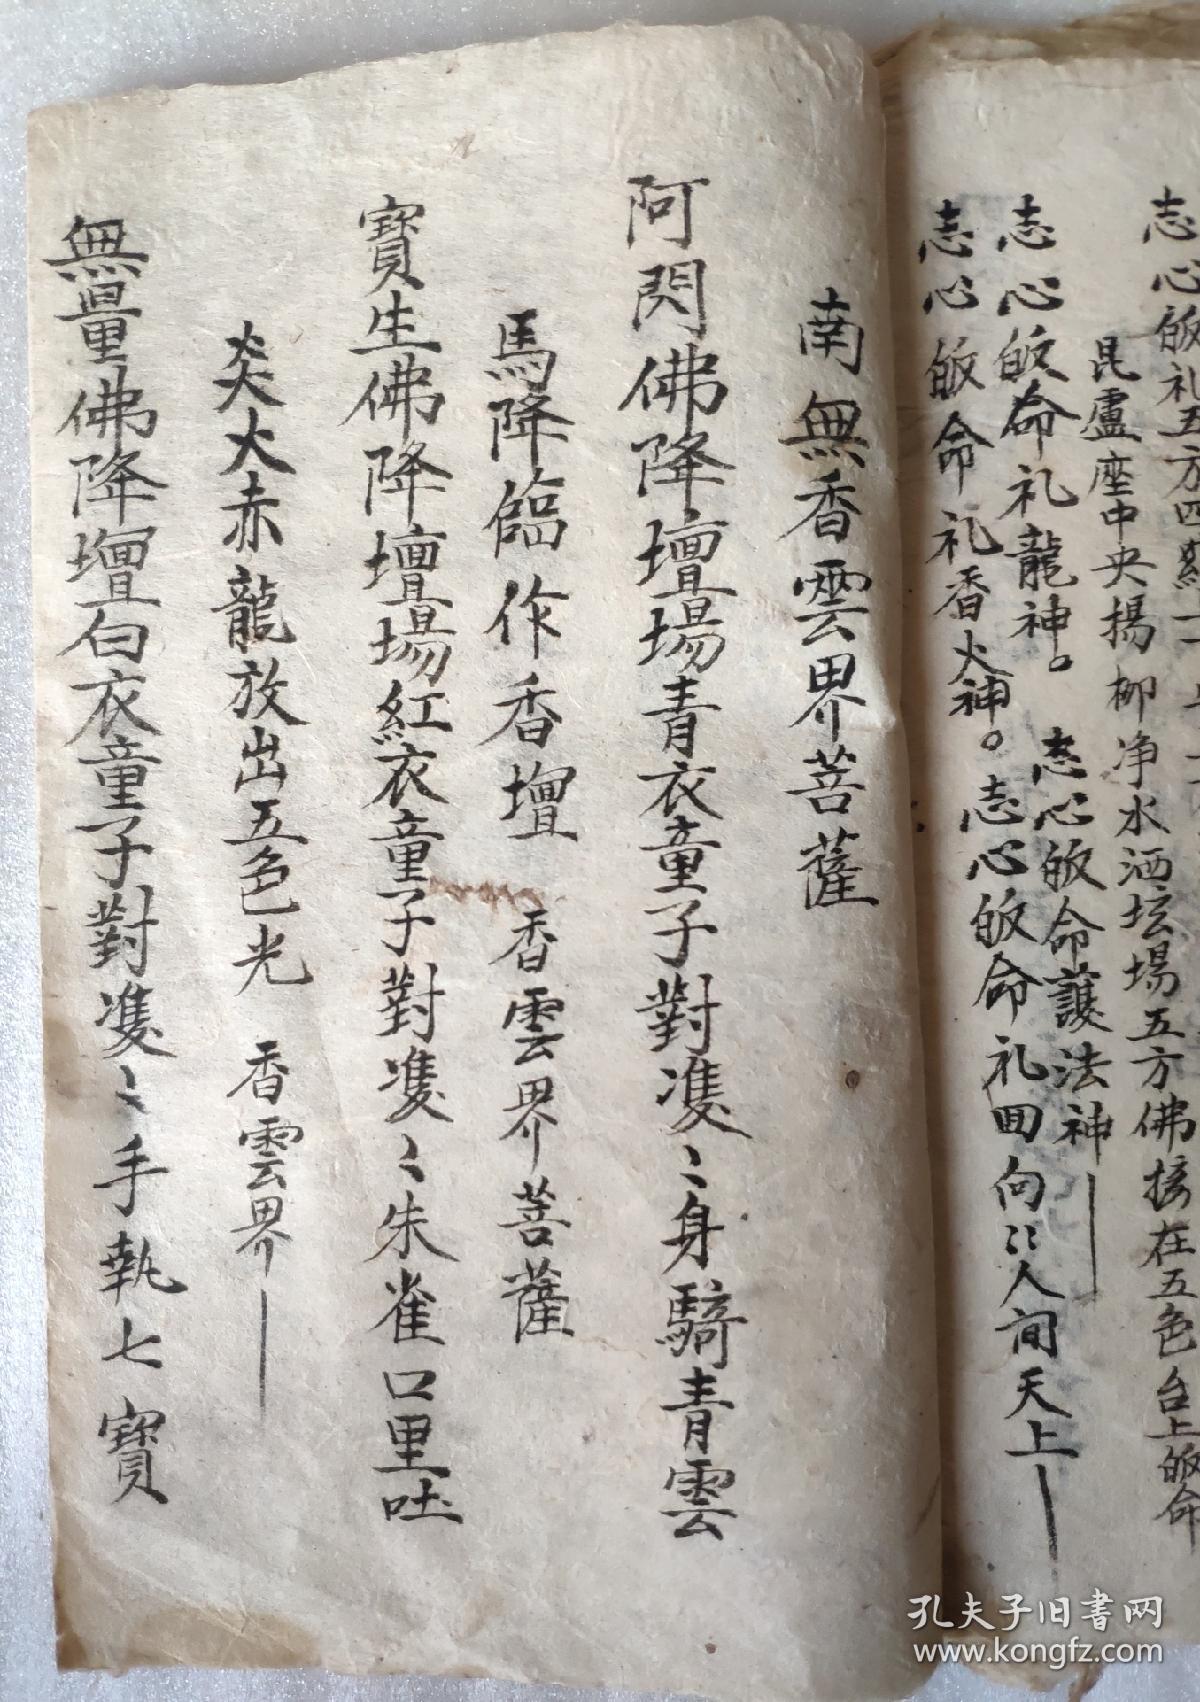 志心皈礼五方四
毘盧座中央楊柳净水洒坛場五方佛接在五色台上皈命
志心皈命礼龍神。 志心皈命護法神
志心皈命礼香火神。志心皈命礼回向〻人间天上
南無香雲界菩薩
阿閦佛降壇場青衣童子對雙〻身騎青雲
馬降臨作香壇 香雲界菩薩
寶生佛降壇場紅衣童子對雙〻朱雀口里吐
炎大赤龍放出五色光 香雲界
無量佛降壇白衣童子對雙〻手執七寶
孔夫子旧書网
www.kongfz.com